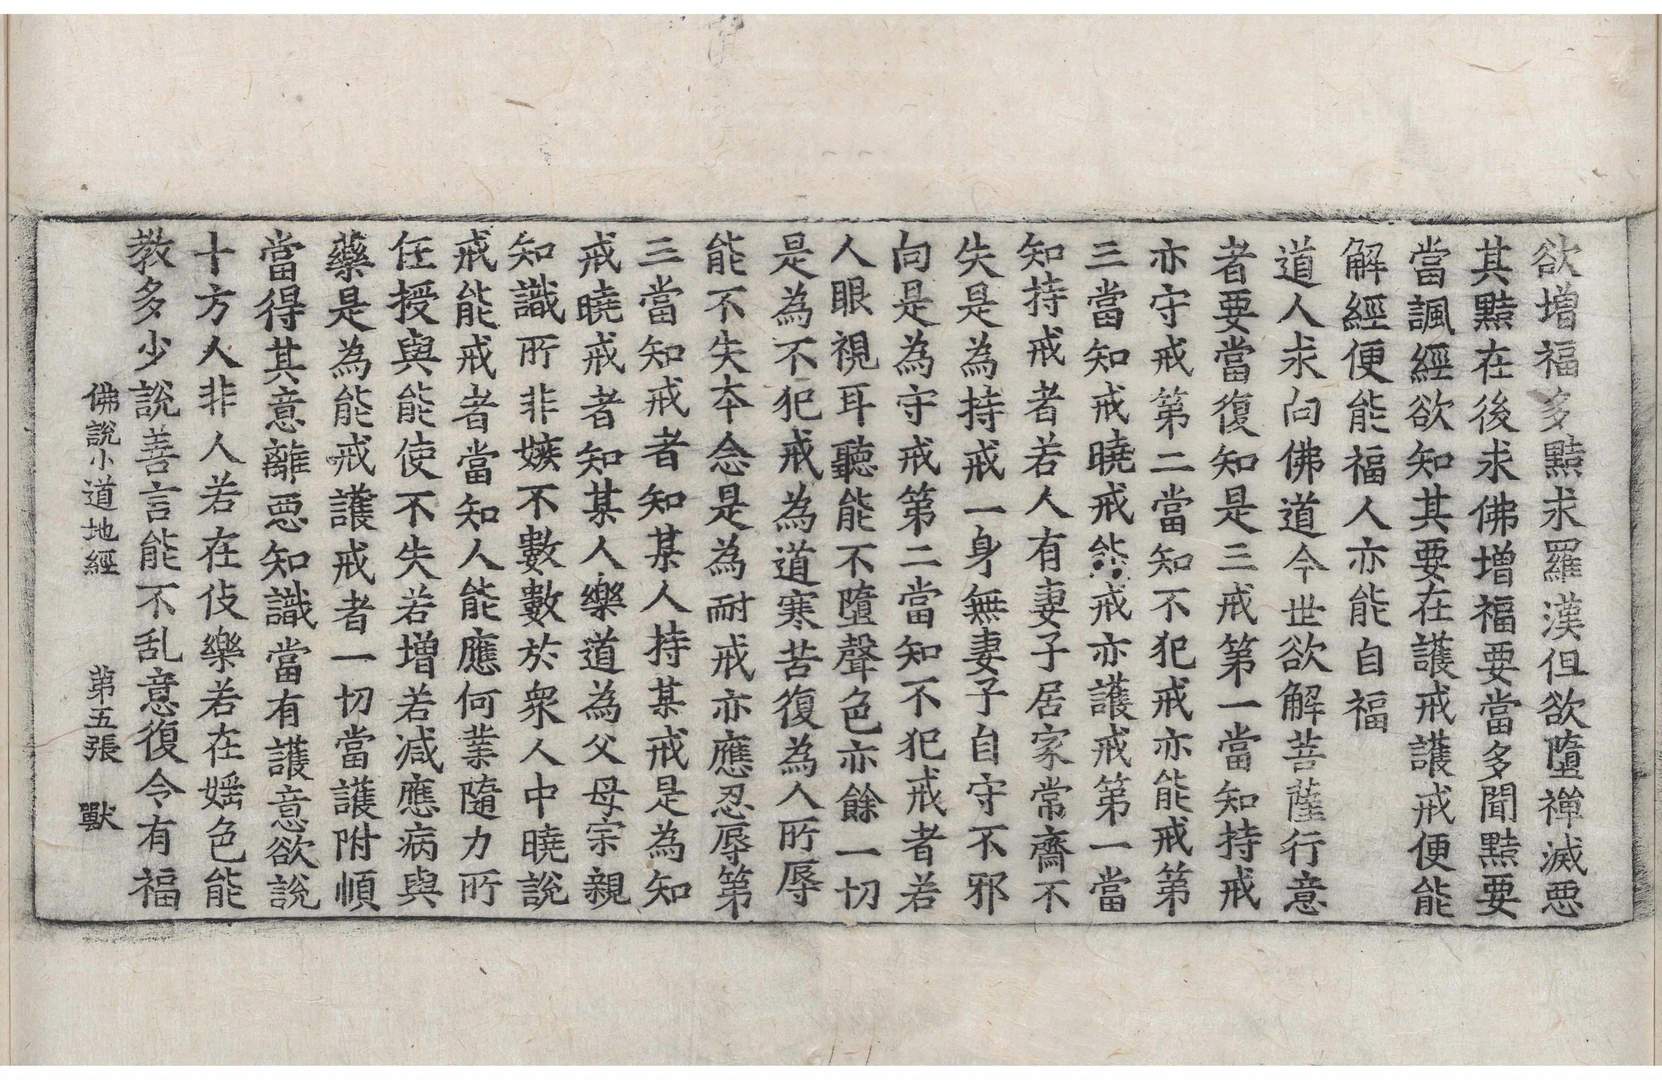 欲增福多黠求羅漢但欲墮禪滅惡
其黠在後求佛增福要當多聞黠要
當諷經欲知其要在護戒護戒便能
解經便能福人亦能自福
道人求向佛道今世欲解菩薩行意
者要當復知是三戒第一當知持戒
亦守戒第二當知不犯戒亦能戒第
三當知戒曉戒能戒亦護戒第一當
知持戒者若人有妻子居家常齋不
失是為持戒一身無妻子自守不邪
向是為守戒第二當知不犯戒者若
人眼視耳聽能不墮聲色亦餘一切
是為不犯戒為道寒苦復為人所辱
能不失本念是為耐戒亦應忍辱第
三當知戒者知某人持某戒是為知
戒曉戒者知某人樂道為父母宗親
知識所非嫉不數數於衆人中曉說
戒能戒者當知人能應何業隨力所
任授與能使不失若增若减應病與
藥是為能戒護戒者一切當護附順
當得其意離惡知識當有護意欲說
十方人非人若在伎樂若在婬色能
教多少說善言能不乱意復令有福
佛說小道地經　第五張　獸